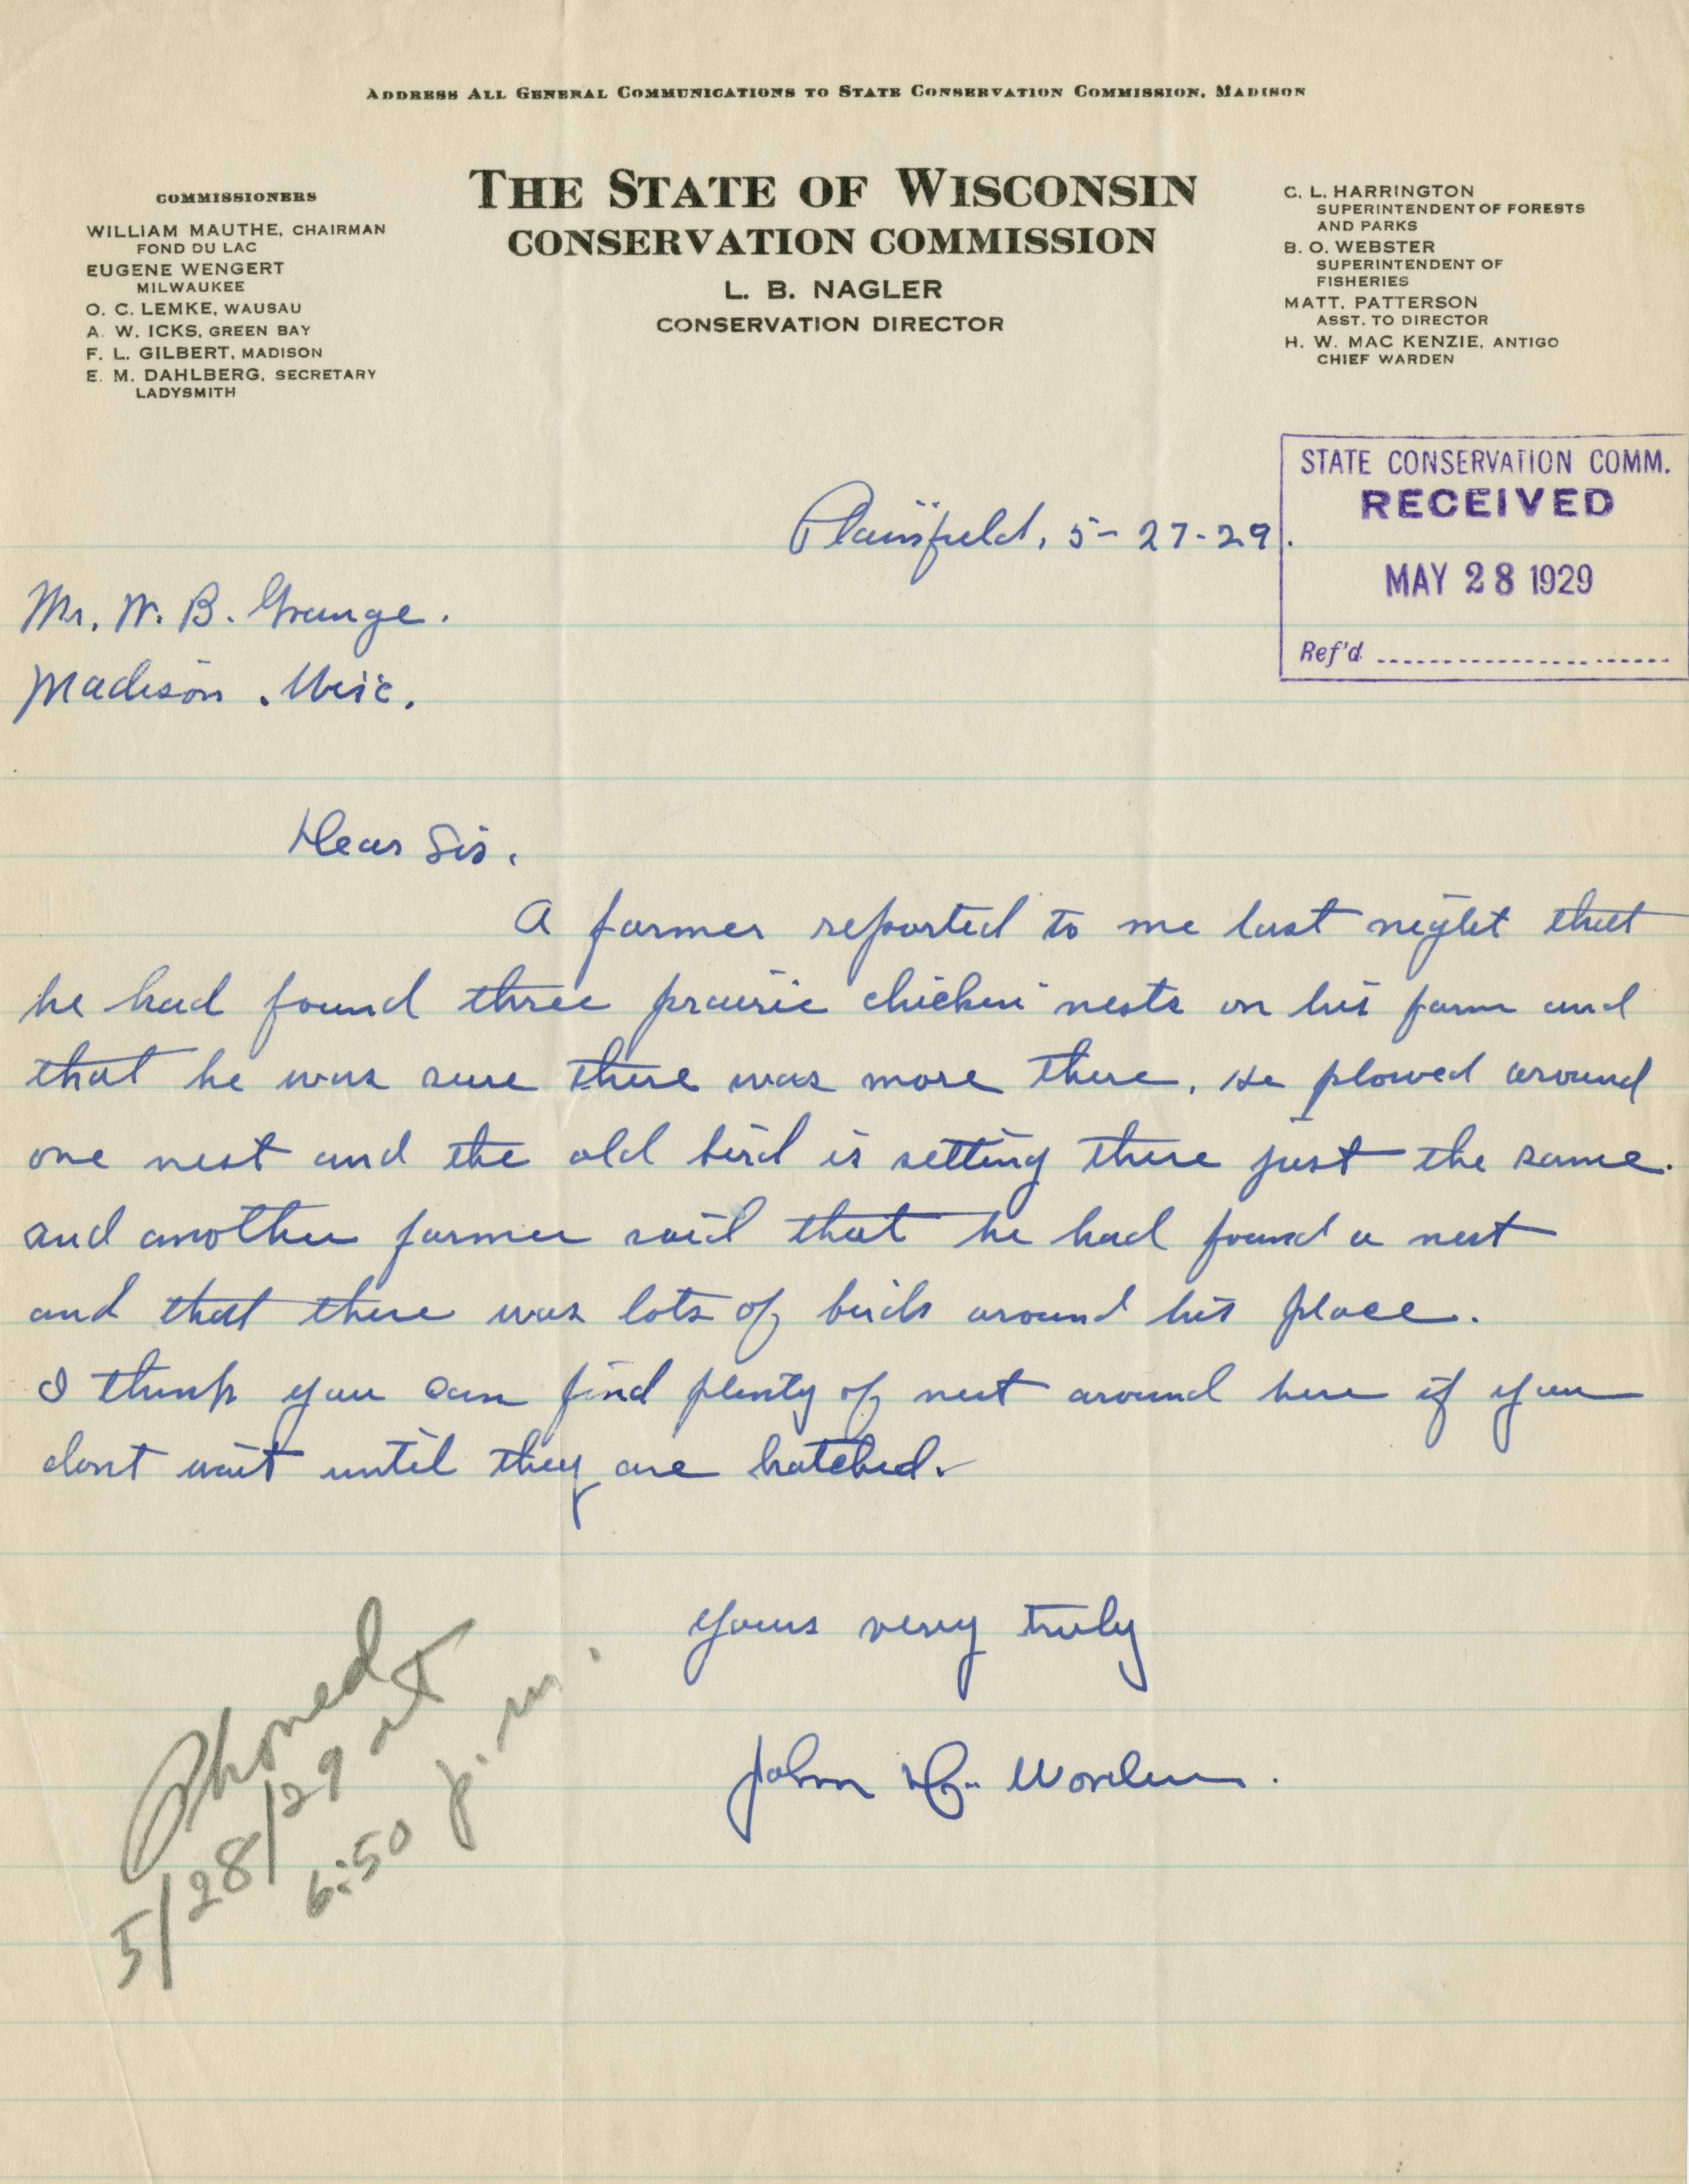 ADDRESS ALL GENERAL COMMUNICATIONS TO STATE CONSERVATION COMMISSION, MADISON
THE STATE OF WISCONSIN
CONSERVATION COMMISSION
L. B. NAGLER
CONSERVATION DIRECTOR
COMMISSIONERS
WILLIAM MAUTHE, CHAIRMAN
FOND DU LAC
EUGENE WENGERT
MILWAUKEE
O. C. LEMKE, WAUSAU
A. W. ICKS, GREEN BAY
F. L. GILBERT, MADISON
E. M. DAHLBERG, SECRETARY
LADYSMITH
C. L. HARRINGTON
SUPERINTENDENT OF FORESTS
AND PARKS
B. O. WEBSTER
SUPERINTENDENT OF
FISHERIES
MATT. PATTERSON
ASST. TO DIRECTOR
H. W. MAC KENZIE, ANTIGO
CHIEF WARDEN
STATE CONSERVATION COMM.
RECEIVED
MAY 28 1929
Ref'd
Plainfield, 5-27-29.
Mr. W. B. Grange.
Madison. Wisc.
Dear Sir.
A farmer reported to me last night that
he had found three prairie chicken nests on his farm and
that he was sure there was more there. He plowed around
one nest and the old bird is setting there just the same.
and another farmer said that he had found a nest
and that there was lots of birds around his place.
I think you can find plenty of nest around here if you
dont wait until they are hatched.
Yours very truly
John Worden.
Phoned
5/28/29 at
6:50 p.m.